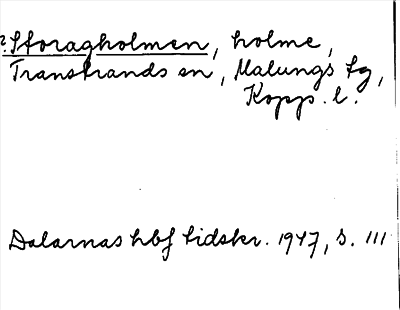 ?Storagholmen, holme,
Transtrands sn, Malungs tg,
Kopp. l.
Dalarnas hbf tidskr. 1947, s. 111